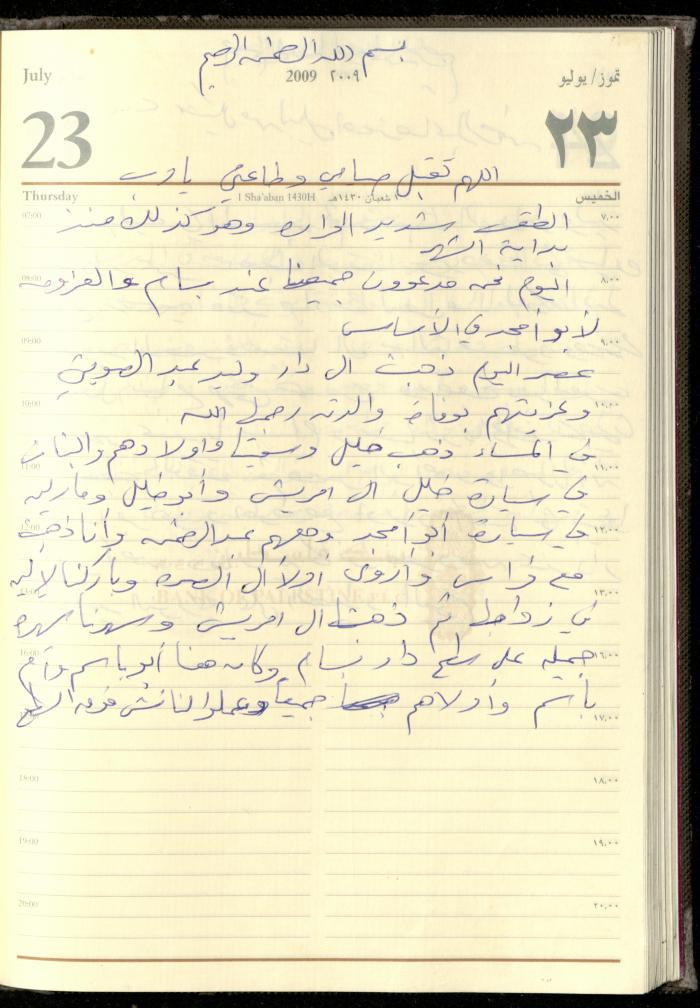 بسم الله الرحمن الرحيم
July 2009 ٢٠٠٩ تموز/ يوليو
23 ٢٣
اللهم تقبل صيامي وطاعتي يارب
Thursday 1 Sha'aban 1430H ١ شعبان ١٤٣٠هـ الخميس
07:00 الطقس شديد الحرارة وهو كذلك منذ ٧,٠٠
بداية الشهر
08:00 اليوم نحن مدعوون جميعنا عند بسام والعزومة ٨,٠٠
لأبو أمجد في الأساس
09:00 ٩,٠٠
عصر اليوم ذهبت الى دار وليد عبد
10:00 وعزيتهم بوفاة والدته رحمها الله ١٠,٠٠
في المساء ذهب خليل وأولادهم والبنات
11:00 ١١,٠٠
في سيارة خليل الى امريش وأبو خليل
12:00 في سيارة أبو أمجد ومعهم عبد الرحمن وأنا ذهبت ١٢,٠٠
مع فراس وأروى اولا الى وباركنا
13:00 BANK OF PALESTINE ١٣,٠٠
في زواجها ثم ذهبت الى امريش وسهرنا سهرة
16:00 جميلة على سطح دار بسام وكان هنا أبو باسم وأم ١٦,٠٠
باسم وأولاهم جميعا وعملوا النانش فوق السطح
17:00 ١٧,٠٠
18:00 ١٨,٠٠
19:00 ١٩,٠٠
20:00 ٢٠,٠٠